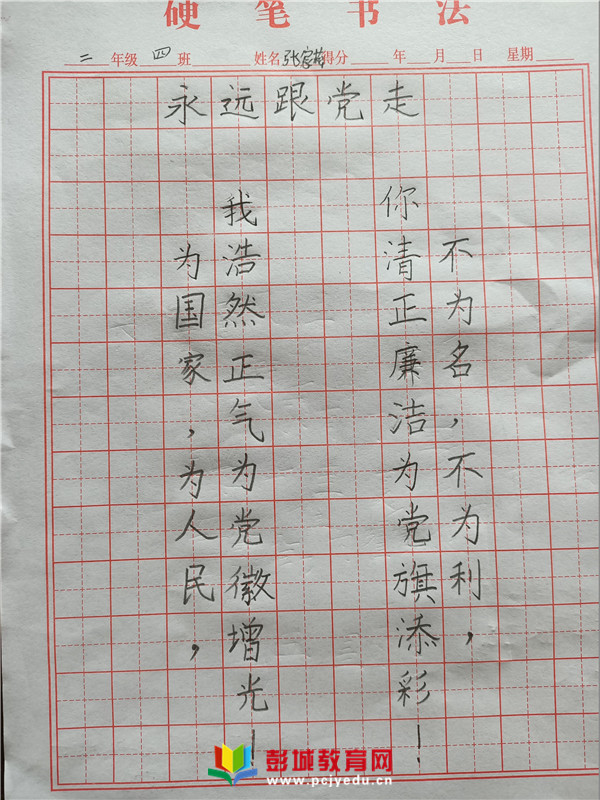 硬笔书法
二年级四班 姓名张家 得分 年 月 日 星期
永远跟党走
不为名，不为利，
你清正廉洁为党旗添彩！
我浩然正气为党徽增光！
为国家，为人民，
彭城教育网
www.pcjyedu.cn